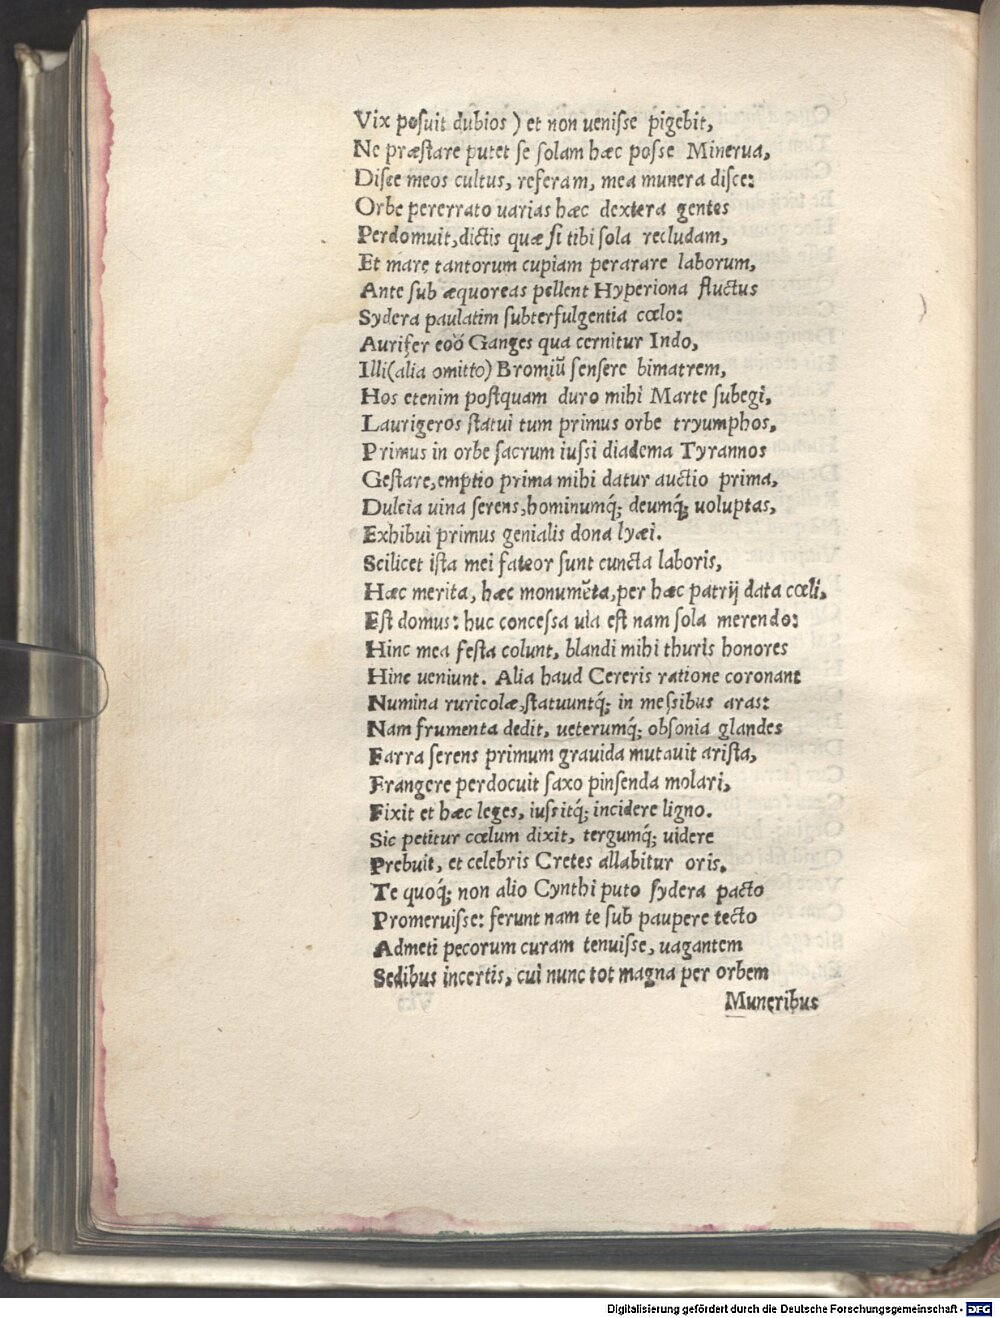 Vix posuit dubios ) et non uenisse pigebit,
Ne præstare putet se solam hæc posse Minerua,
Disce meos cultus, referam, mea munera disce:
Orbe pererrato uarias hæc dextera gentes
Perdomuit, dictis quæ si tibi sola recludam,
Et mare tantorum cupiam perarare laborum,
Ante sub æquoreas pellent Hyperiona fluctus
Sydera paulatim subterfulgentia cœlo:
Aurifer eoó Ganges qua cernitur Indo,
Illi(alia omitto) Bromiũ sensere bimatrem,
Hos etenim postquam duro mihi Marte subegi,
Laurigeros statui tum primus orbe tryumphos,
Primus in orbe sacrum iussi diadema Tyrannos
Gestare, emptio prima mihi datur auctio prima,
Dulcia uina serens, hominumq́; deumq́; uoluptas,
Exhibui primus genialis dona lyæi.
Scilicet ista mei fateor sunt cuncta laboris,
Hæc merita, hæc monumẽta, per hæc patrij data cœli,
Est domus: huc concessa uia est nam sola merendo:
Hinc mea festa colunt, blandi mihi thuris honores
Hinc ueniunt. Alia haud Cereris ratione coronant
Numina ruricolæ, statuuntq́; in messibus aras:
Nam frumenta dedit, ueterumq́; obsonia glandes
Farra serens primum grauida mutauit arista,
Frangere perdocuit saxo pinsenda molari,
Fixit et hæc leges, iussitq́; incidere ligno.
Sic petitur cœlum dixit, tergumq́; uidere
Prebuit, et celebris Cretes allabitur oris.
Te quoq́; non alio Cynthi puto sydera pacto
Promeruisse: ferunt nam te sub paupere tecto
Admeti pecorum curam tenuisse, uagantem
Sedibus incertis, cui nunc tot magna per orbem
Muneribus
Digitalisierung gefördert durch die Deutsche Forschungsgemeinschaft - DFG